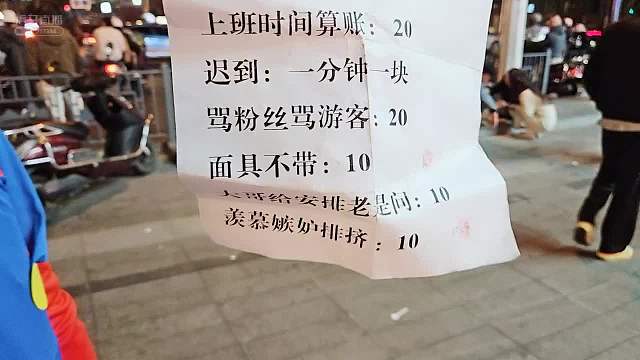 上班时间算账：20
迟到：一分钟一块
骂粉丝骂游客：20
面具不带：10
大哥给安排老是问：10
羡慕嫉妒排挤：10